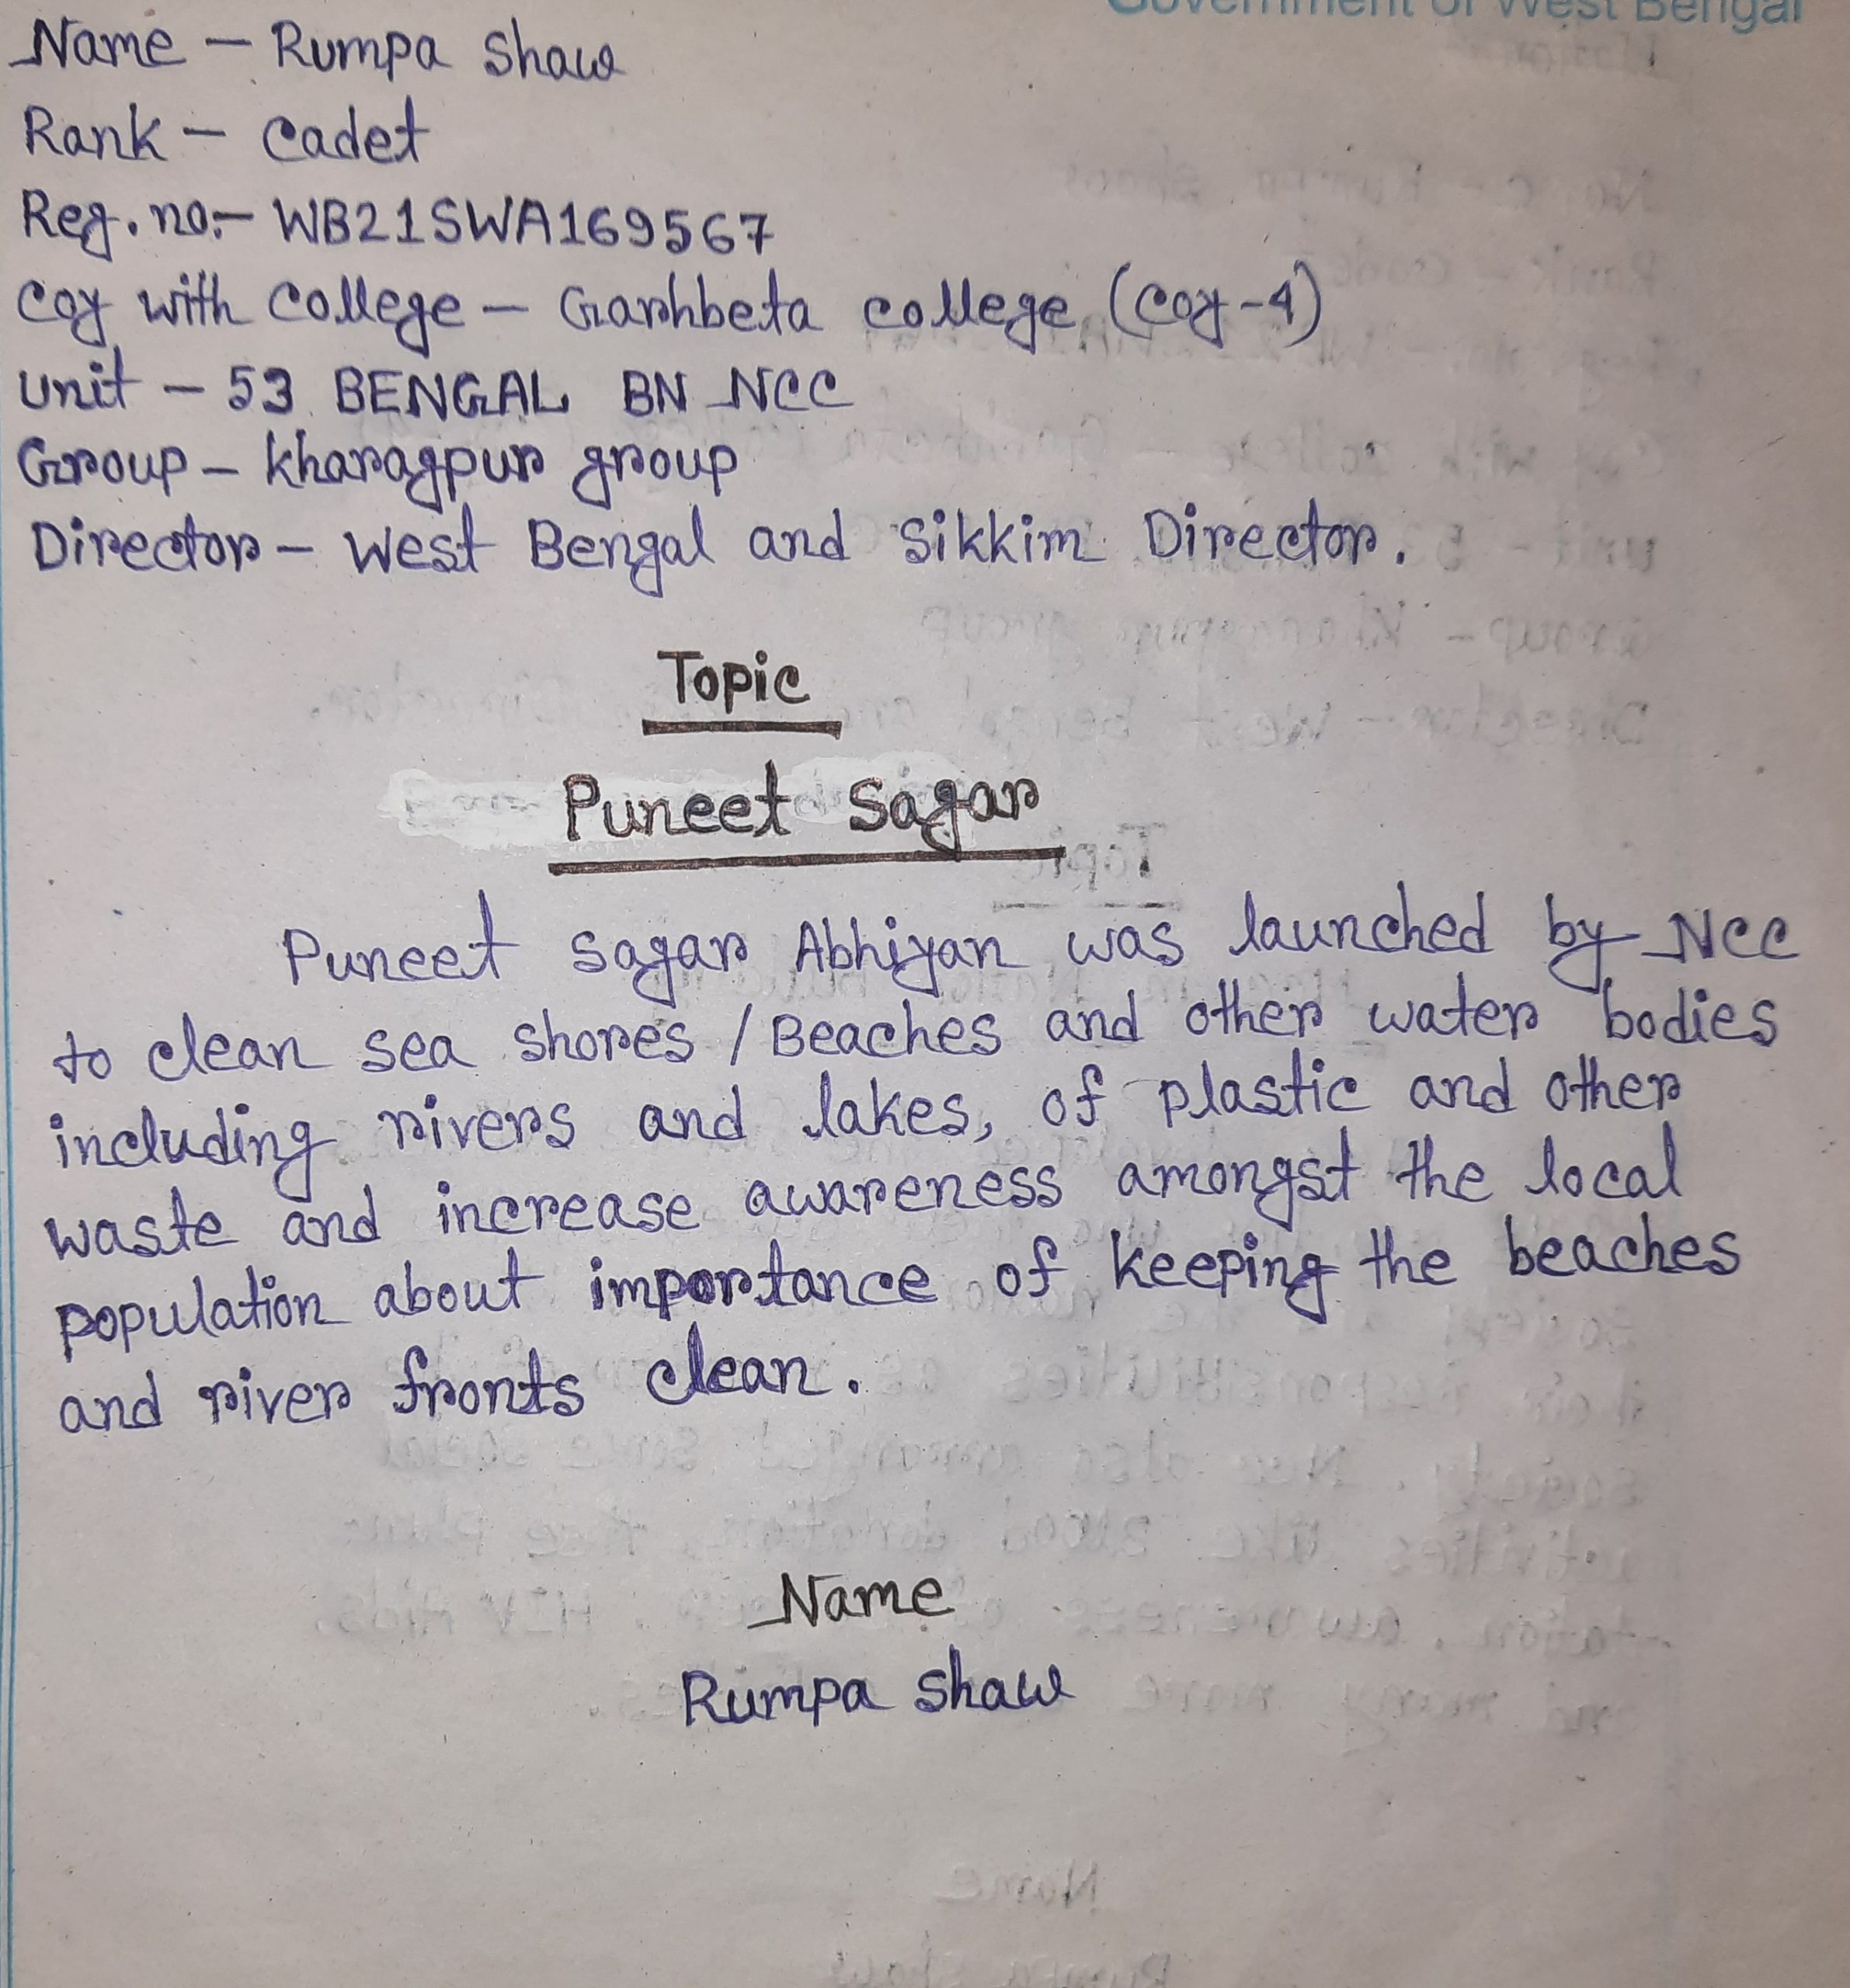 Government of West Bengal
Name – Rumpa Shaw
Rank – Cadet
Reg. no:– WB21SWA169567
Coy with College – Garhbeta college (coy-4)
Unit – 53 BENGAL BN NCC
Group – Kharagpur group
Director – West Bengal and Sikkim Director.
Topic
Puneet Sagar
Puneet Sagar Abhiyan was launched by NCC
to clean sea shores / Beaches and other water bodies
including rivers and lakes, of plastic and other
waste and increase awareness amongst the local
population about importance of keeping the beaches
and river fronts clean.
Name
Rumpa Shaw